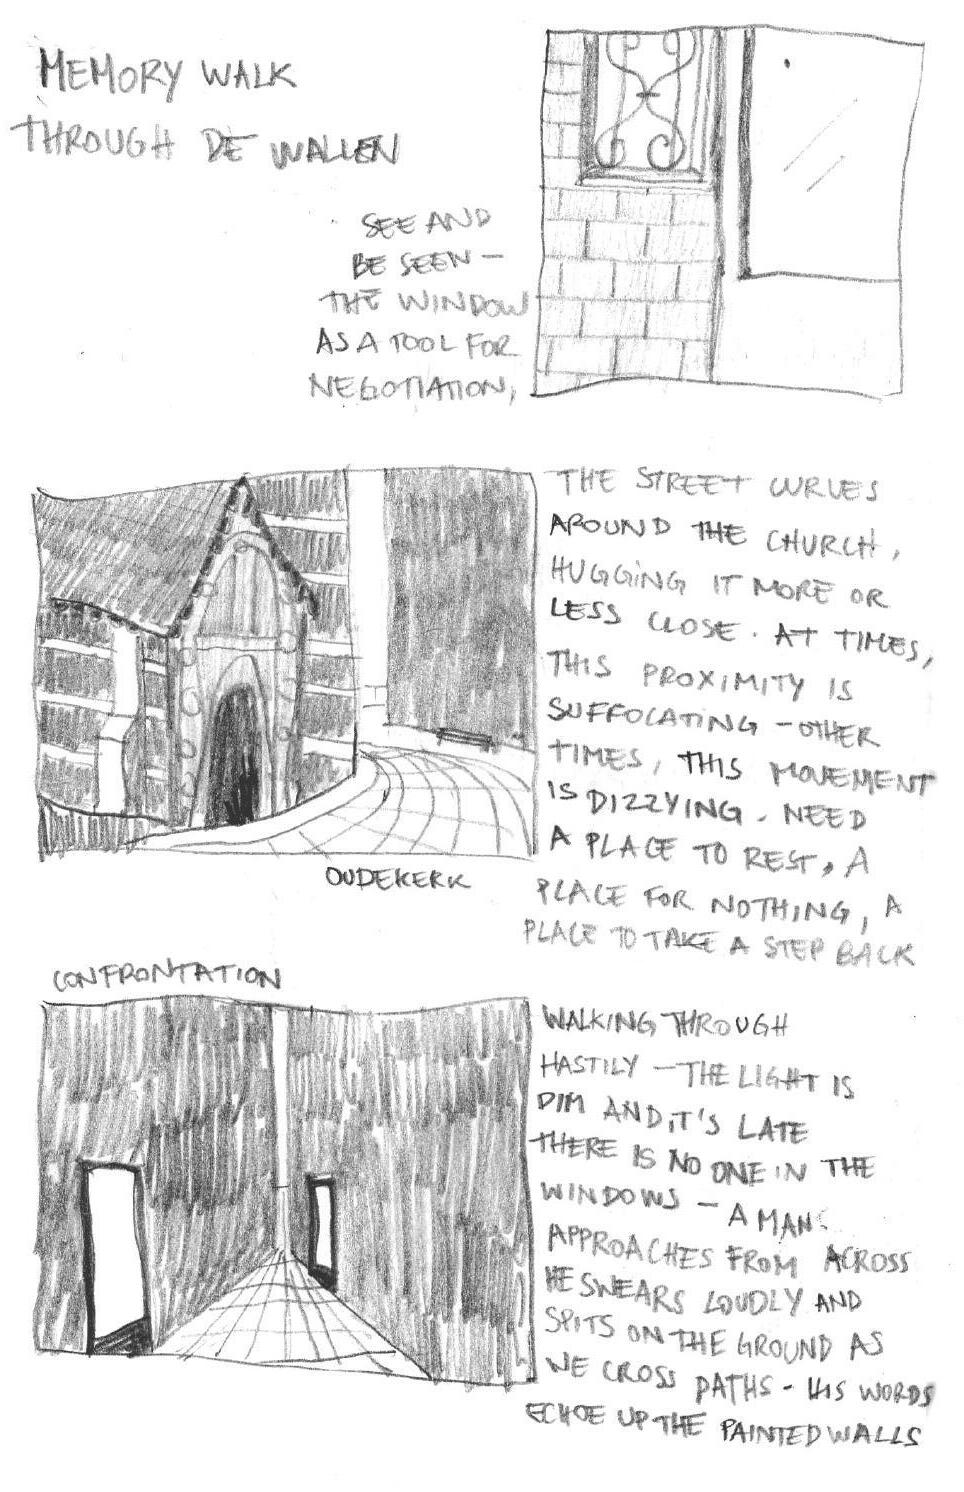 MEMORY WALK
THROUGH DE WALLEN
SEE AND
BE SEEN –
THE WINDOW
AS A TOOL FOR
NEGOTIATION,
THE STREET CURVES
AROUND THE CHURCH,
HUGGING IT MORE OR
LESS CLOSE. AT TIMES,
THIS PROXIMITY IS
SUFFOCATING – OTHER
TIMES, THIS MOVEMENT
IS DIZZYING. NEED
A PLACE TO REST, A
PLACE FOR NOTHING, A
PLACE TO TAKE A STEP BACK
OUDEKERK
CONFRONTATION
WALKING THROUGH
HASTILY – THE LIGHT IS
DIM AND IT'S LATE
THERE IS NO ONE IN THE
WINDOWS – A MAN
APPROACHES FROM ACROSS
HE SWEARS LOUDLY AND
SPITS ON THE GROUND AS
WE CROSS PATHS - HIS WORDS
ECHOE UP THE PAINTED WALLS